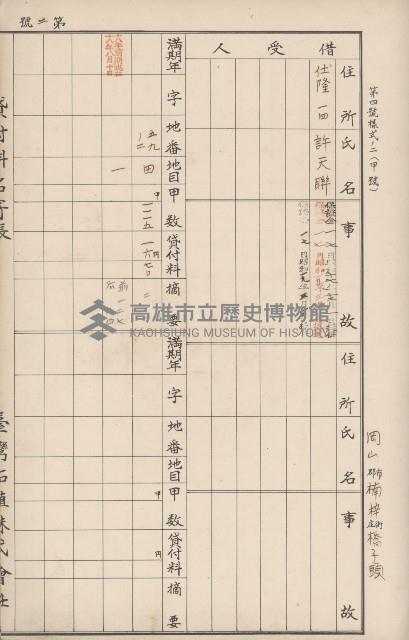 第四號樣式ノ二(甲號)
岡山
郡市
楠梓
庄街
橋子頭
第二號
借受人
住所氏名
仕隆
一四
許天聯
事故
住所氏名
事故
滿期年
字
地番
五九
ノ二
地目
田
一
甲
甲數
一一一五
貸付料
円
一六七〇
摘要
滿期年
字
地番
地目
甲
甲數
貸付料
円
摘要
貸付料名寄帳
臺灣拓殖株式會社
高雄市立歷史博物館
KAOHSIUNG MUSEUM OF HISTORY